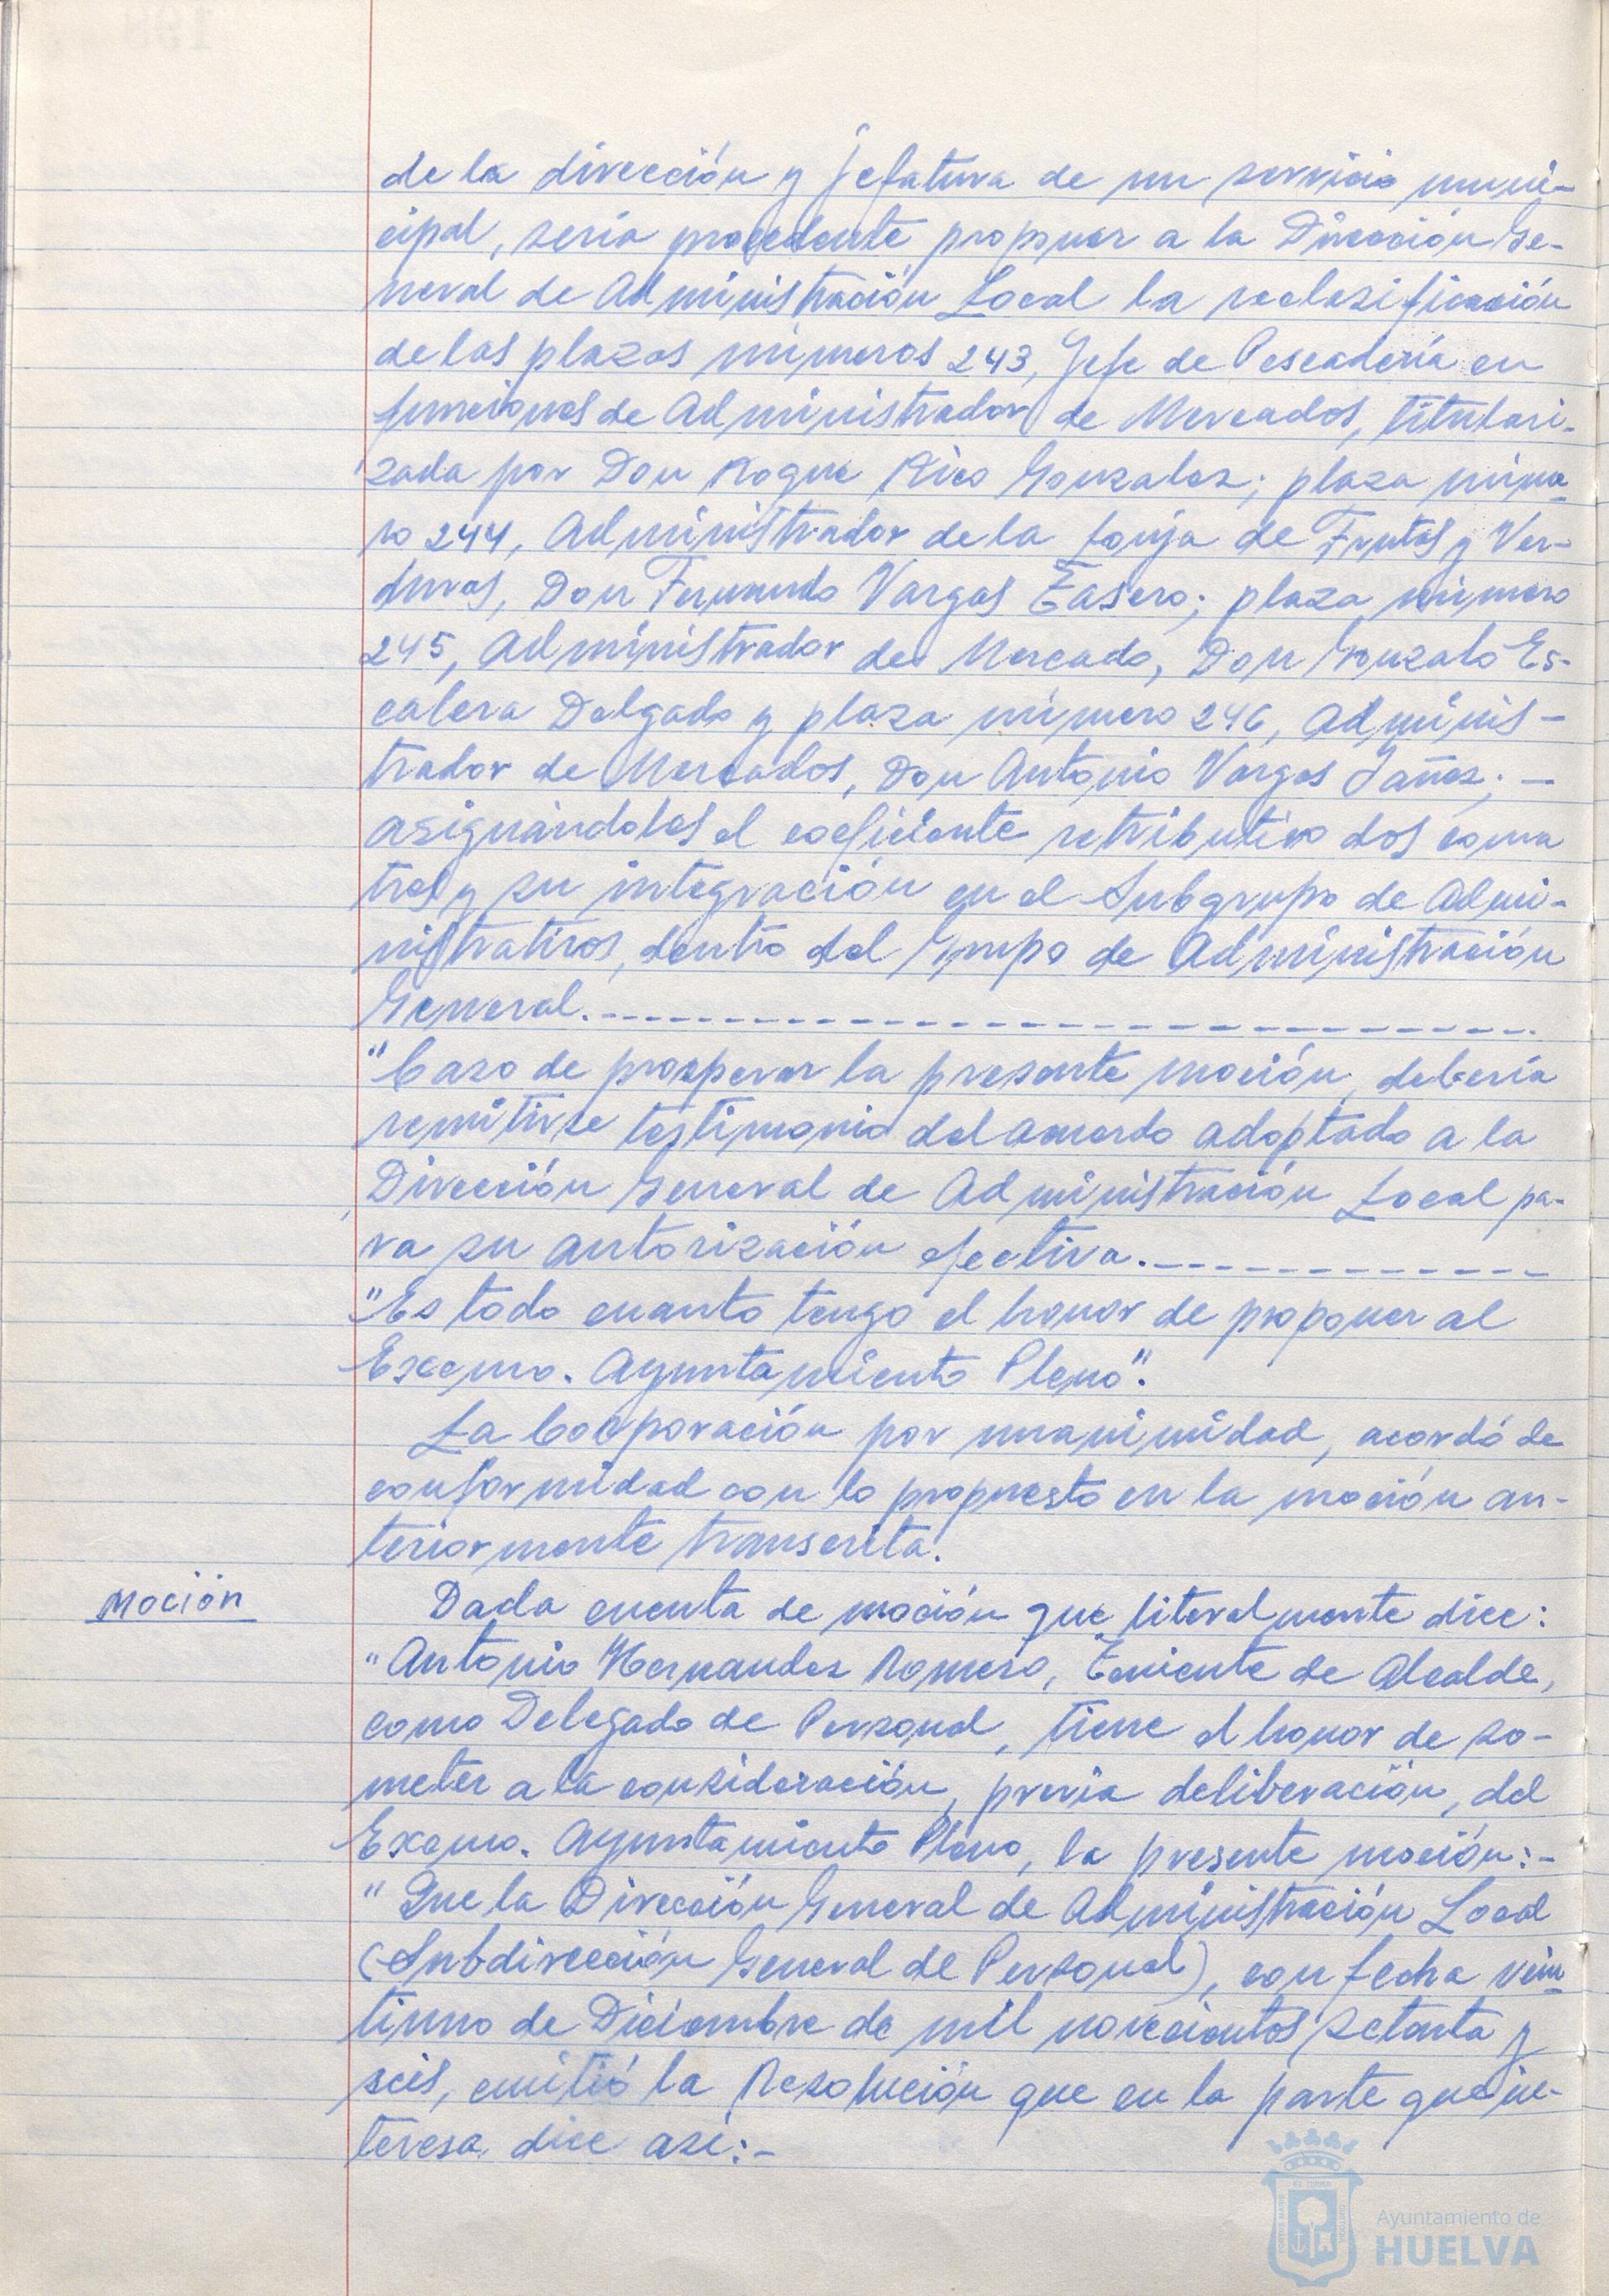 de la dirección y Jefatura de un servicio muni-
cipal, sería procedente proponer a la Dirección Ge-
neral de Administración Local la reclasificación
de las plazas números 243, Jefe de Pescadería en
funciones de Administrador de Mercados, titulari-
zada por Don Roque Rico Gonzalez; plaza núme-
ro 244, Administrador de la Lonja de Frutas y Ver-
duras, Don Fernando Vargas Tasero; plaza número
245, Administrador de Mercado, Don Gonzalo Es-
calera Delgado y plaza número 246, Adminis-
trador de Mercados, Don Antonio Vargas Yañez; -
asignándoles el coeficiente retributivo dos coma
tres y su integración en el Subgrupo de Admi-
nistrativos, dentro del Grupo de Administración
General.
"Caso de prosperar la presente moción, debería
remitirse testimonio del acuerdo adoptado a la
Dirección General de Administración Local pa-
ra su autorización efectiva.
"Es todo cuanto tengo el honor de proponer al
Excmo. Ayuntamiento Pleno".
La Corporación por unanimidad, acordó de
conformidad con lo propuesto en la moción an-
teriormente transcrita.
Moción
Dada cuenta de moción que literalmente dice:
"Antonio Hernandez Romero, Teniente de Alcalde,
como Delegado de Personal, tiene el honor de so-
meter a la consideración, previa deliberación, del
Excmo. Ayuntamiento Pleno, la presente moción:-
"Que la Dirección General de Administración Local
(Subdirección General de Personal), con fecha vein-
tiuno de Diciembre de mil novecientos setenta y
seis, emitió la Resolución que en la parte que in-
teresa dice asi:-
Ayuntamiento de
HUELVA